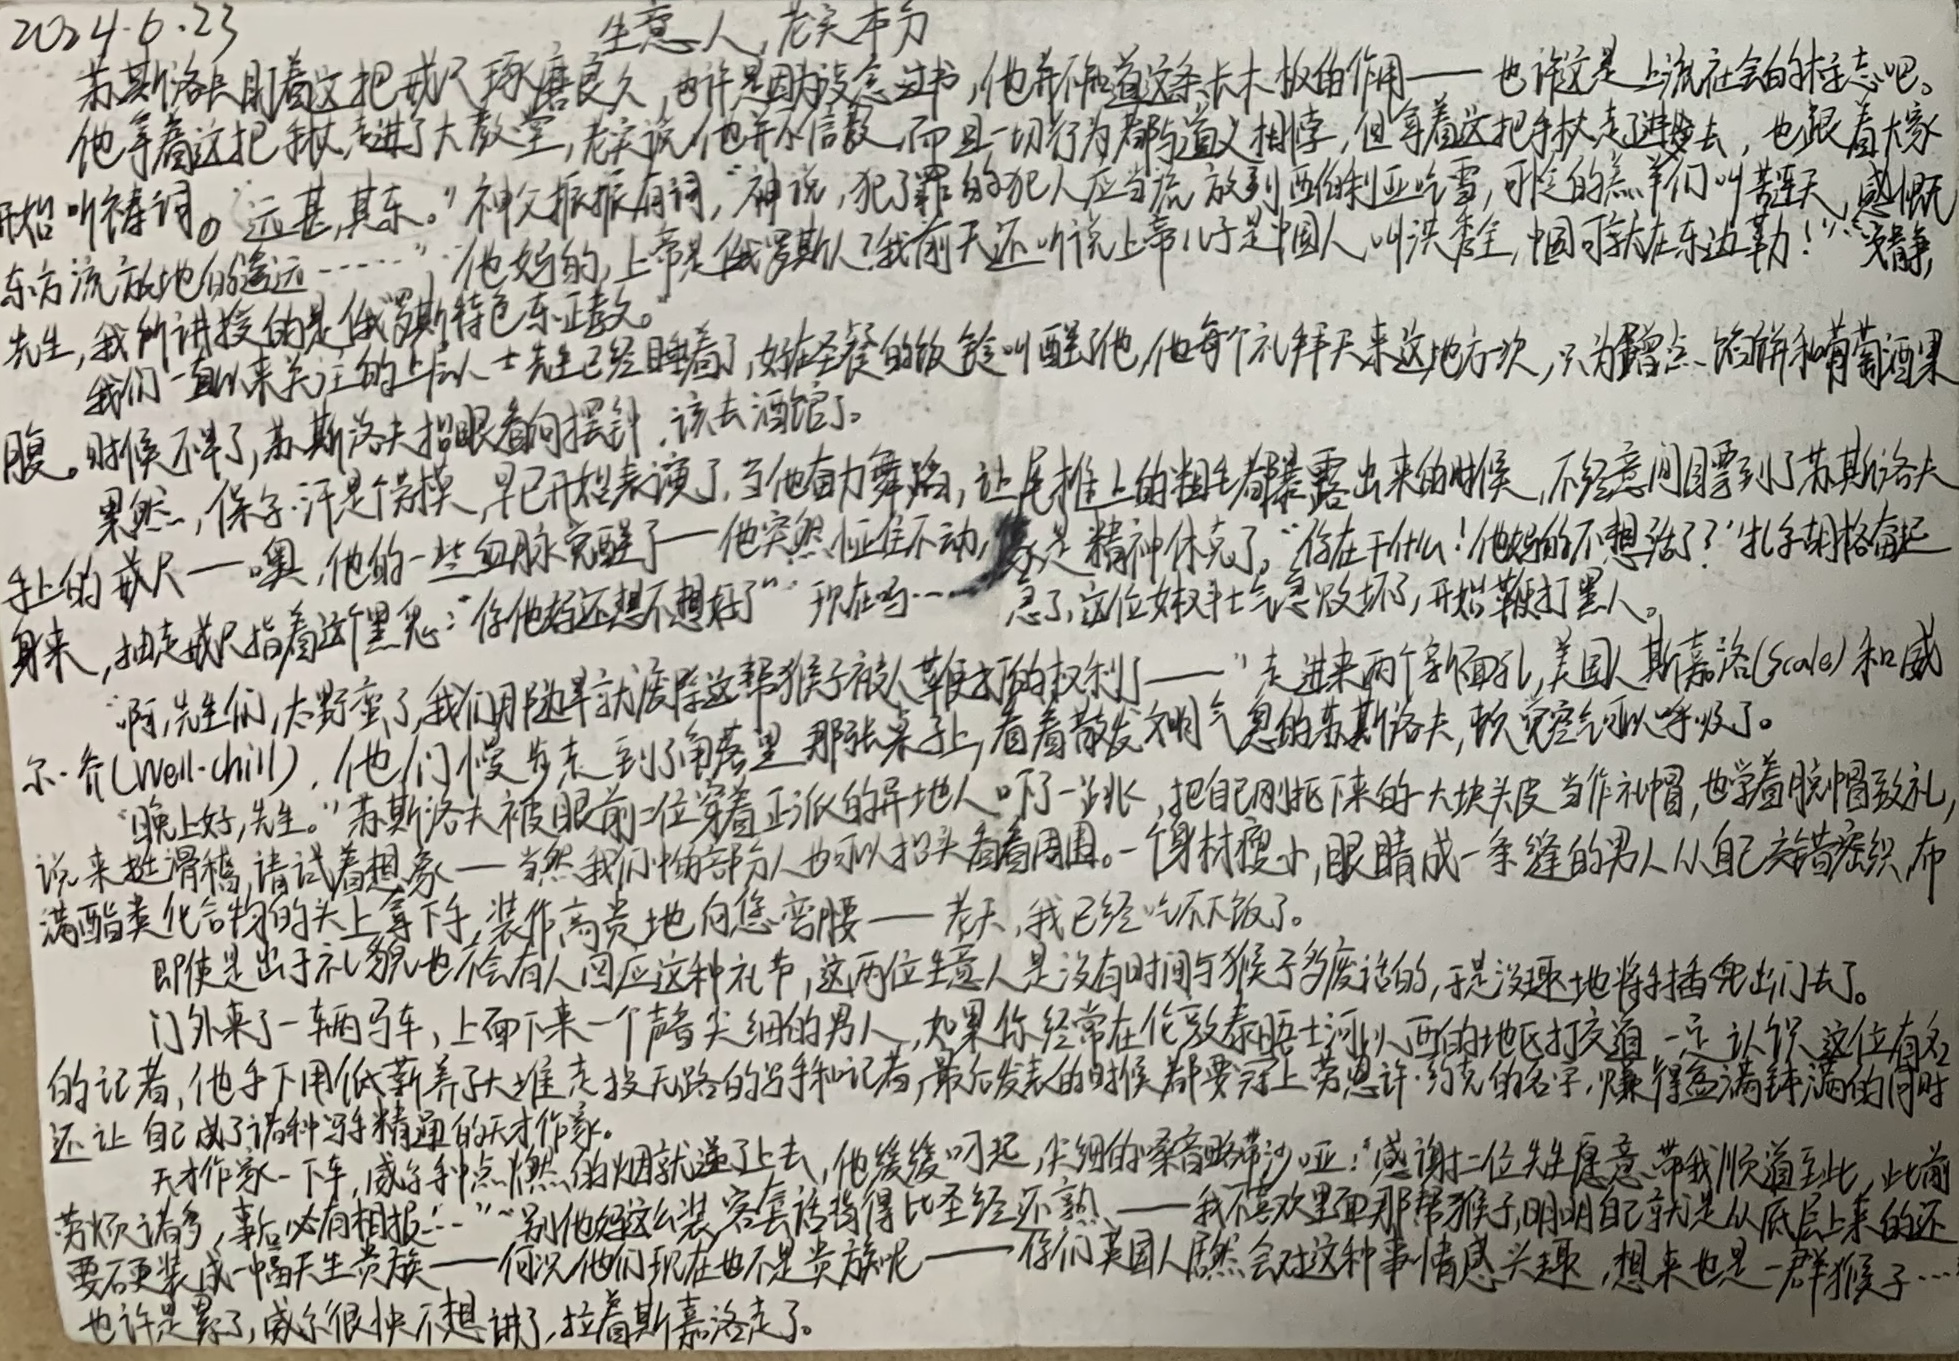 2024.6.23
生意人,老实本分
苏斯洛夫盯着这把戒尺琢磨良久,也许是因为没念过书,他并不知道这条长木板的作用——也许这是上流社会的标志吧。
他拿着这把手杖,走进了大教堂,老实说,他并不信教,而且一切行为都与道义相悖,但拿着这把手杖走了进去,也跟着大家
开始听祷词。“远甚,其东。”神父振振有词,“神说,犯了罪的犯人应当流放到西伯利亚吃雪,可怜的羔羊们叫苦连天,感慨
东方流放地的遥远……”“他妈的,上帝是俄罗斯人?我前天还听说上帝儿子是中国人,叫洪秀全,中国可就在东边勒!”“安静,
先生,我所讲授的是俄罗斯特色东正教。”
我们一直以来关注的上层人士先生已经睡着了,好在圣餐的饭铃叫醒了他,他每个礼拜天来这地方一次,只为蹭点馅饼和葡萄酒果
腹。时候不早了,苏斯洛夫抬眼看向摆针,该去酒馆了。
果然,保字·汗是个劳模,早已开始表演了,当他奋力舞蹈,让尾椎上的粗毛都暴露出来的时候,不经意间瞟到了苏斯洛夫
手上的戒尺——噢,他的一些血脉觉醒了——他突然怔住不动,象是精神休克了。“你在干什么!他妈的不想活了?”扎子胡格奋起
身来,抽走戒尺指着这个黑鬼:“你他妈还想不想好了”“现在吗……”急了,这位女权斗士气急败坏了,开始鞭打黑人。
“啊,先生们,太野蛮了,我们那边早就废除这帮猴子被人鞭打的权利了——”走进来两个新面孔,美国人斯嘉洛(Scale)和威
尔·乔(Well·Chill),他们慢步走到了角落里那张桌子上,看着散发文明气息的苏斯洛夫,顿觉空气可以呼吸了。
“晚上好,先生。”苏斯洛夫被眼前二位穿着正派的异地人吓了一跳,把自己刚抠下来的一大块头皮当作礼帽,也学着脱帽致礼,
说来挺滑稽,请试着想象——当然我们中的部分人也可以抬头看看周围。一个身材瘦小,眼睛成一条缝的男人从自己交错密织布
满酯类化合物的头上拿下手,装作高贵地向您弯腰——老天,我已经吃不下饭了。
即使是出于礼貌也不会有人回应这种礼节,这两位生意人是没有时间与猴子多废话的,于是没趣地将手插兜出门去了。
门外来了一辆马车,上面下来一个声音尖细的男人,如果你经常在伦敦泰晤士河以西的地区打交道一定认识这位有名
的记者,他手下用低薪养了大堆走投无路的写手和记者,最后发表的时候都要冠上劳恩许·约克的名字,赚得盆满钵满的同时
还让自己成了诸种写手精通的天才作家。
天才作家一下车,威尔手中点燃的烟就递了上去,他缓缓叼起,尖细的嗓音略带沙哑:“感谢二位先生愿意带我顺道至此,此前
劳烦诸多,事后必有相报……”“别他妈这么装,客套话背得比圣经还熟——我不喜欢里面那帮猴子,明明自己就是从底层上来的还
要硬装成一幅天生贵族——何况他们现在也不是贵族呢——你们英国人居然会对这种事情感兴趣,想来也是一群猴子……”
也许是累了,威尔很快不想讲了,拉着斯嘉洛走了。